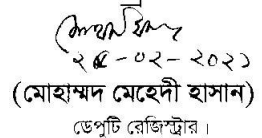 ২৫-০২-২০২১
(মোহাম্মদ মেহেদী হাসান)
ডেপুটি রেজিস্ট্রার।